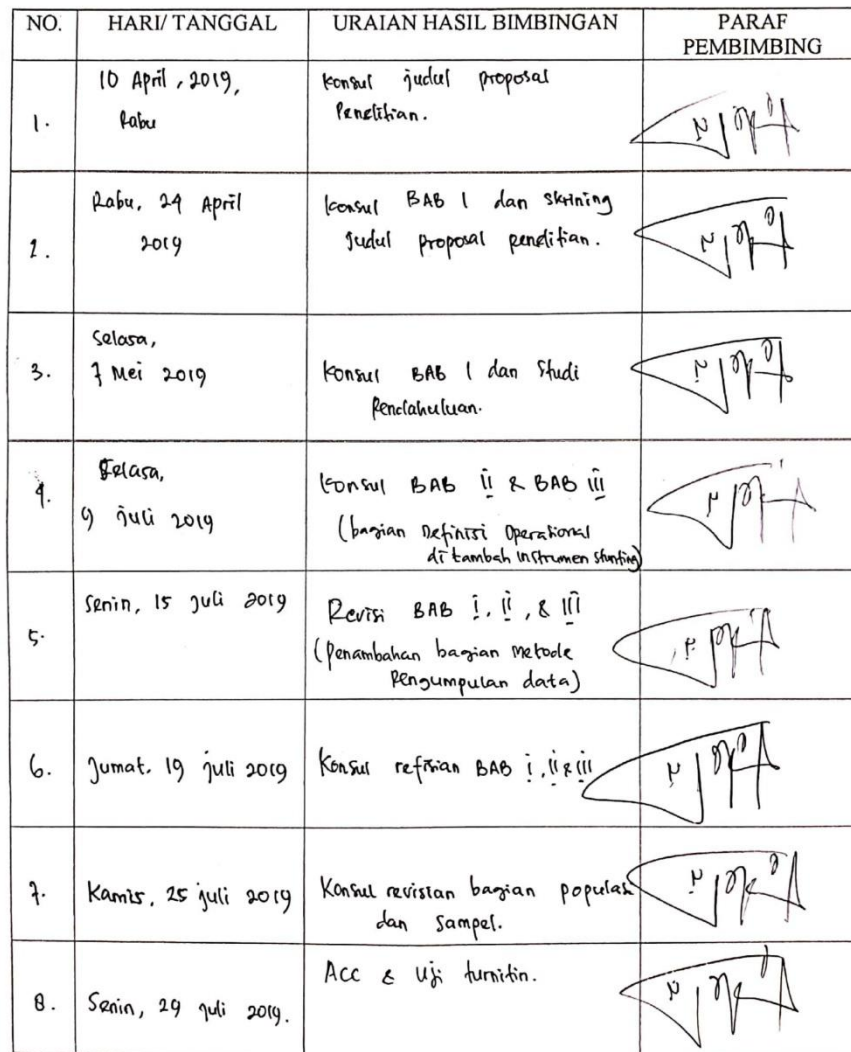 NO. HARI/ TANGGAL URAIAN HASIL BIMBINGAN PARAF
PEMBIMBING
1. 10 April, 2019, Konsul judul proposal
Rabu Penelitian.
2. Rabu, 24 April Konsul BAB I dan skrining
2019 judul proposal penelitian.
3. Selasa,
7 Mei 2019 Konsul BAB I dan Studi
Pendahuluan.
4. Selasa, Konsul BAB ii & BAB iii
9 juli 2019 (bagian Definisi Operasional
di tambah instrumen stunting)
5. Senin, 15 juli 2019 Revisi BAB i, ii, & iii
(penambahan bagian metode
Pengumpulan data)
6. Jumat, 19 juli 2019 Konsul refisian BAB i, ii & iii
7. Kamis, 25 juli 2019 Konsul revisian bagian populasi
dan Sampel.
8. Senin, 29 juli 2019. Acc & Uji turnitin.